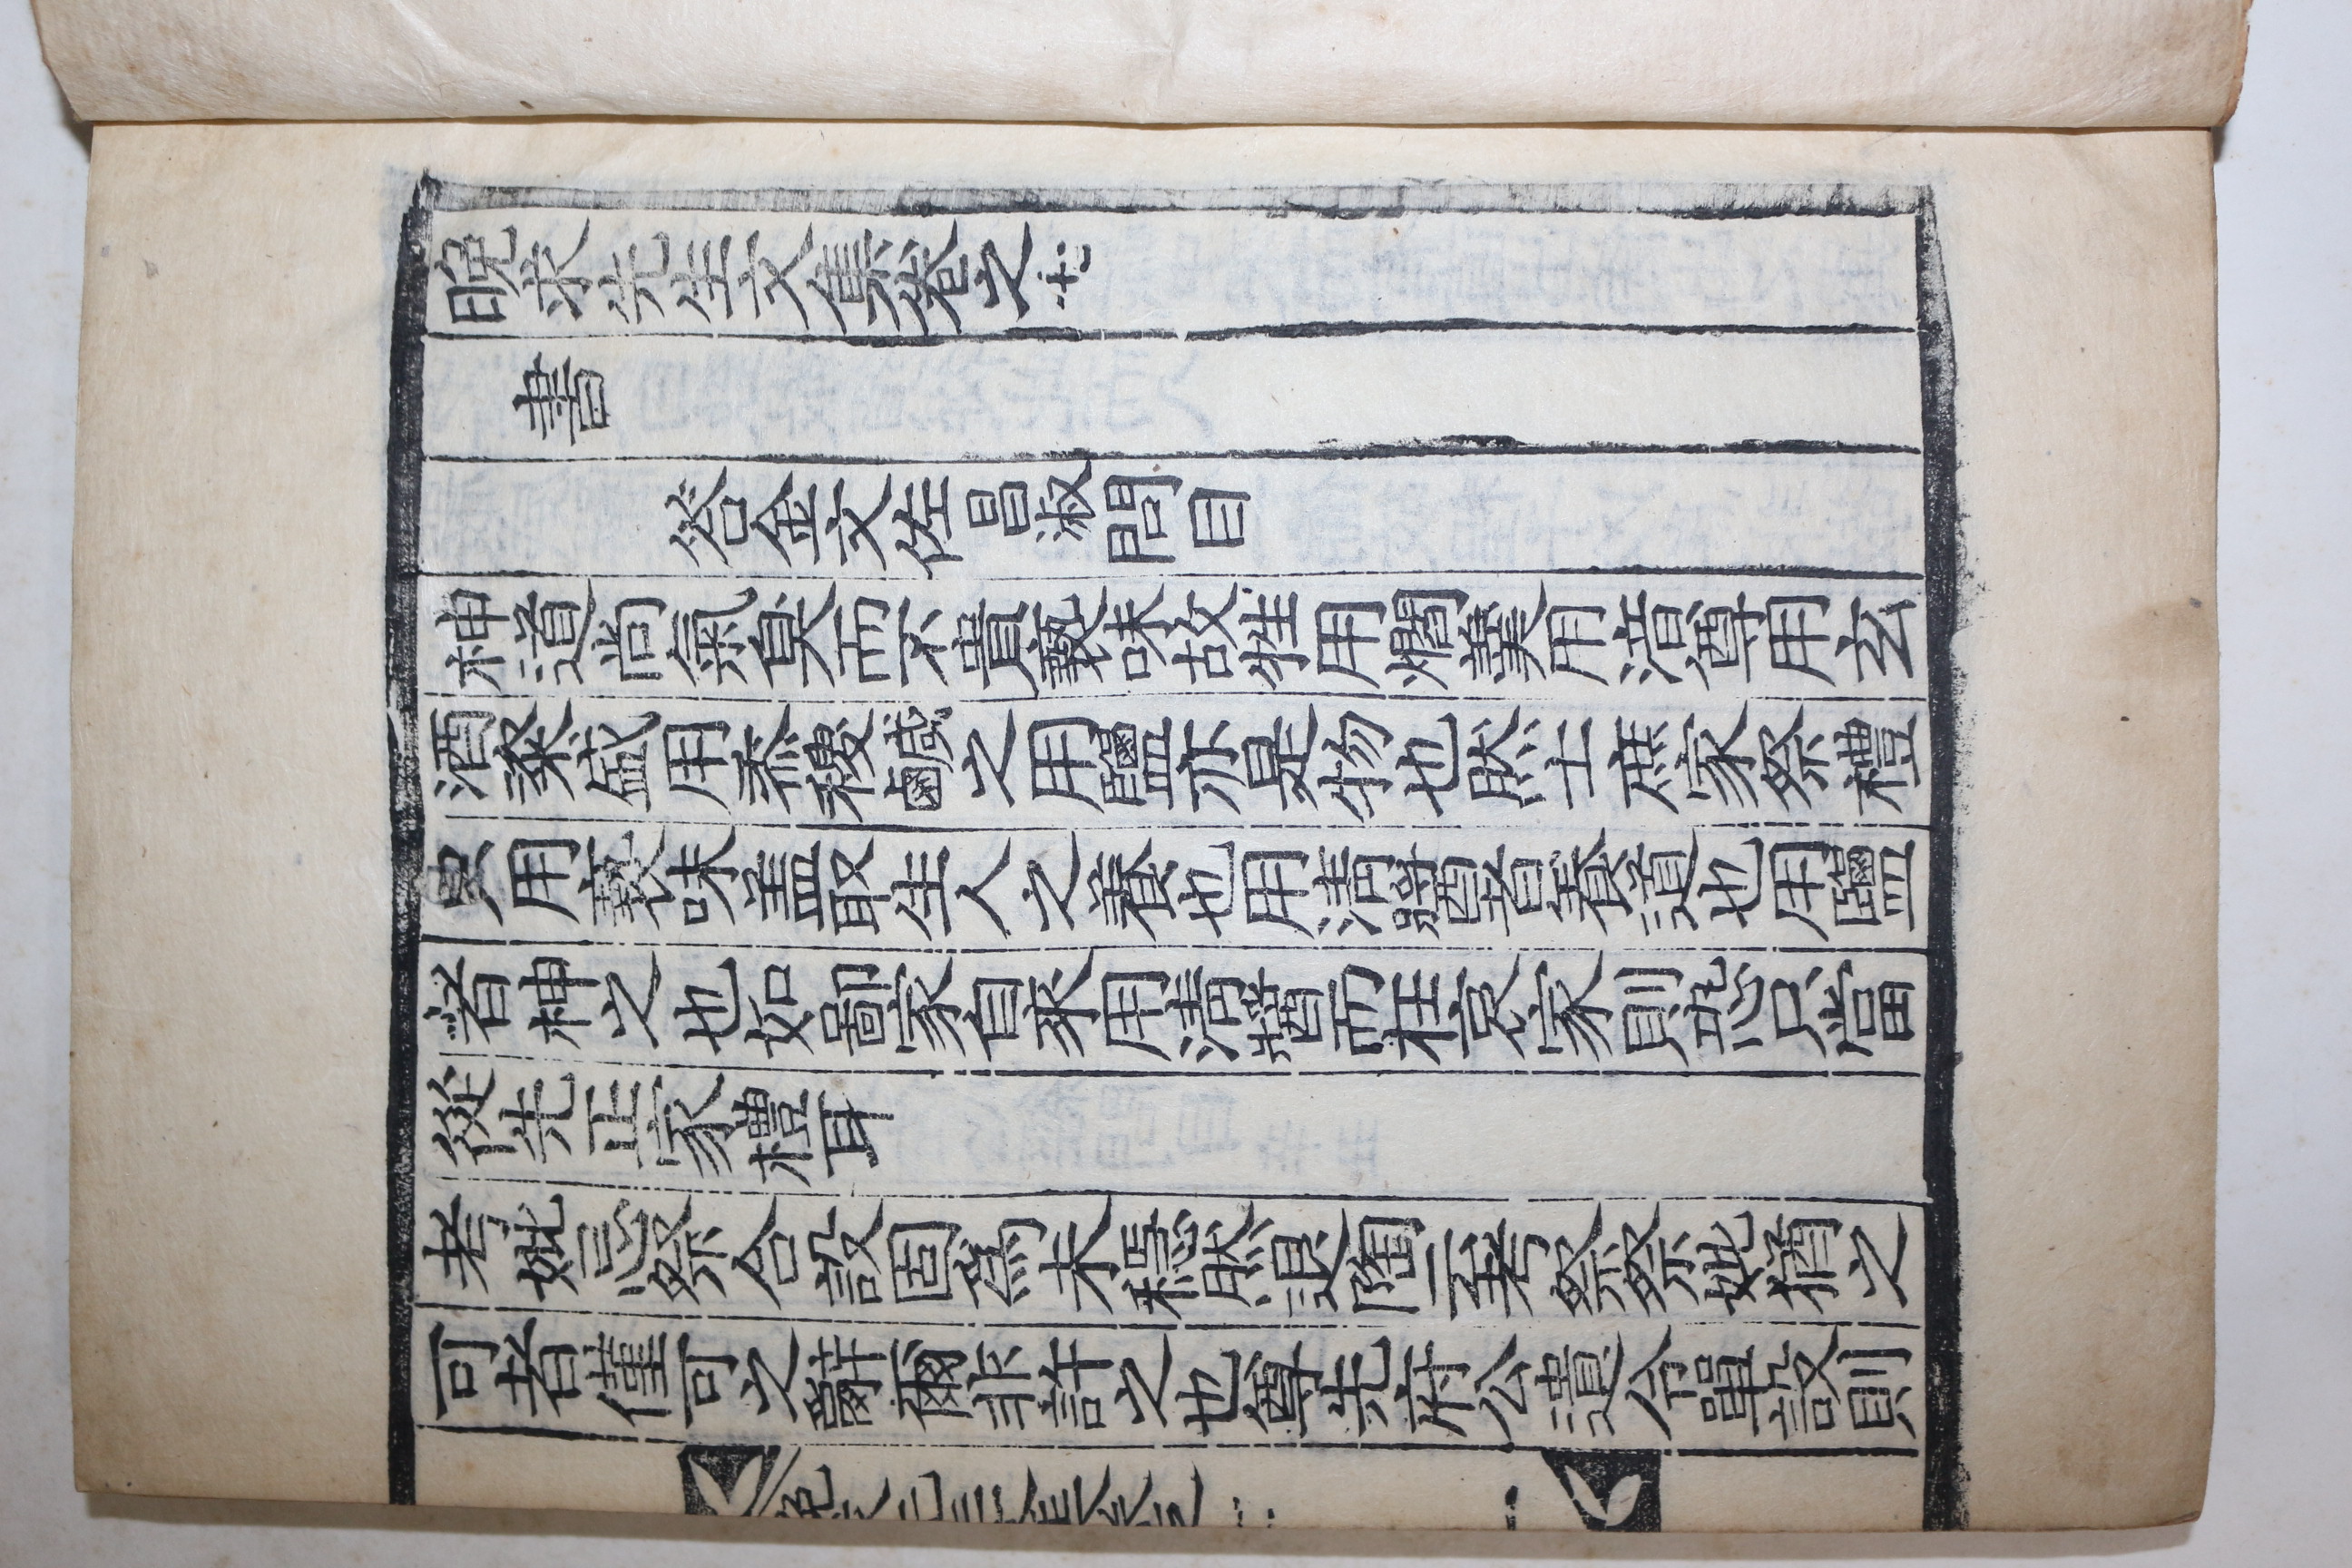 晩求先生文集卷之十七
書
答金文佐昌淑問目
神道尚氣臭而不貴褻味故牲用爓羹用湆尊用玄
酒粢盛用黍稷鹹之用鹽亦是物也然士庶家祭禮
具用褻味盖取生人之養也用淸醬者養道也用鹽
者神之也如鄙家自來用淸醬而在哀家則恐只當
從先正家禮耳
考妣忌祭合設固爲未穩然退陶云考祭祭妣猶之
可者僅可之辭爾非許之也尊先府公遺令單設則